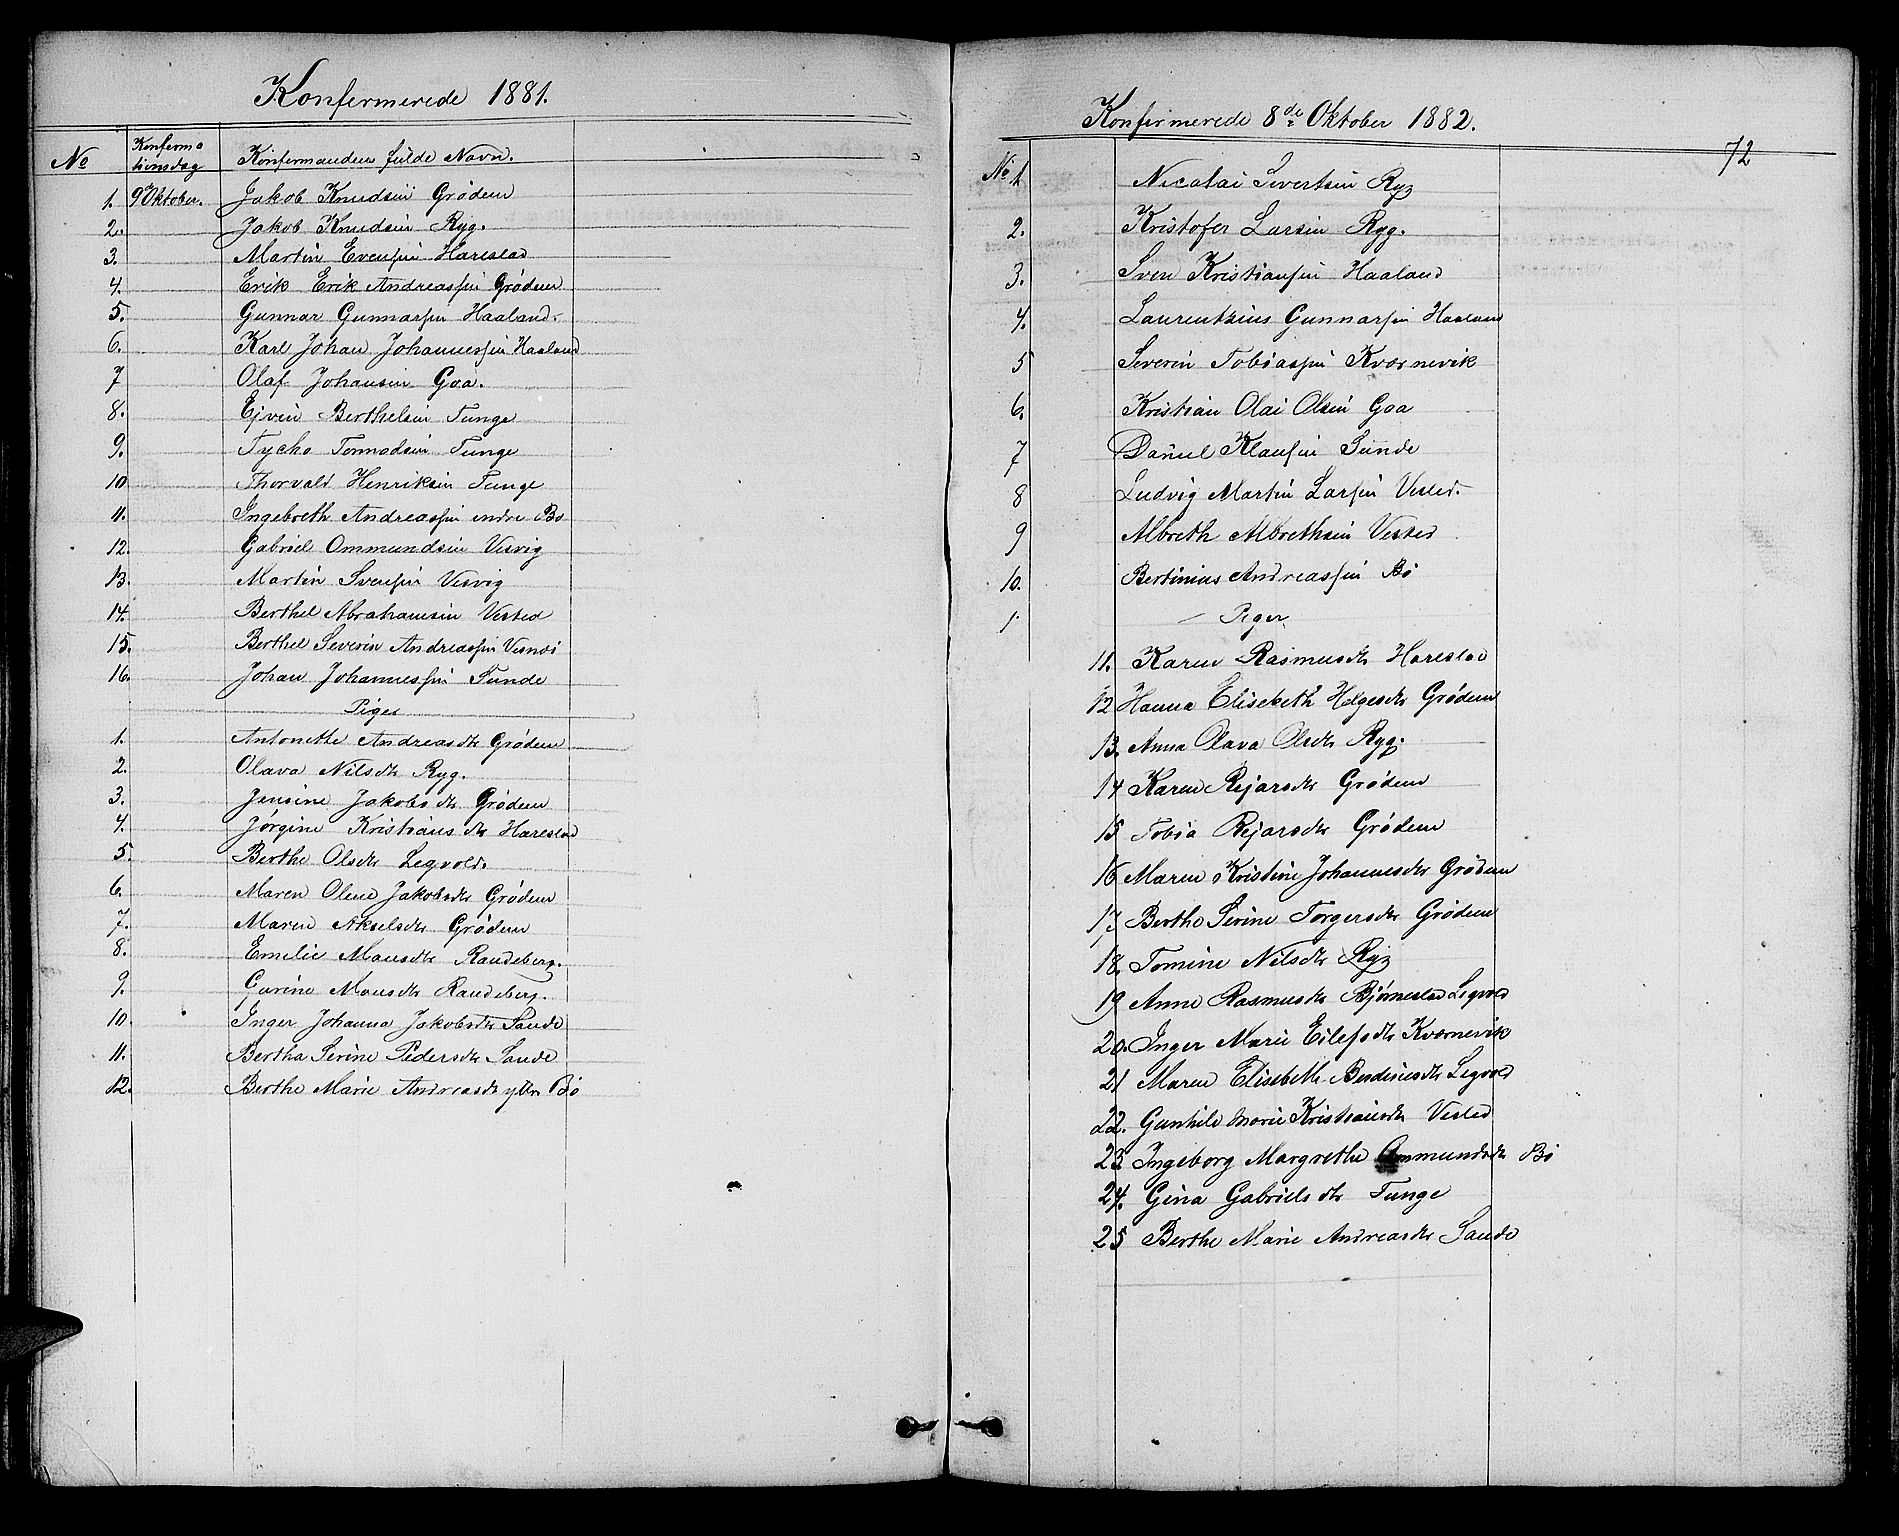 Konfermerede 1881.
No Konferma tionsdag Konfermanden fulde Navn.
1. 9 Oktober. Jakob Knudsen Grødem
2. Jakob Knudsen Ryg.
3. Martin Evensen Harestad
4. Erik Erik Andreassen Grødem
5. Gunnar Gunnarsen Haaland.
6. Karl Johan Johannessen Haaland
7 Olaf Johansen Goa.
8. Ejven Berthelsen Tunge
9. Tycho Tormodsen Tunge
10 Thorvald Henriksen Tunge
11. Ingebreth Andreassen indre Bø
12. Gabriel Ommundsen Visvig
13. Martin Svensen Visvig
14. Berthel Abrahamsen Visted
15. Berthel Severin Andreassen Visnæs
16. Johan Johannessen Sunde
Piger
1. Antonette Andreasdtr Grødem
2. Olava Nilsdtr Ryg.
3. Jensine Jakobsdtr Grødem
4. Jørgine Kristiansdtr Harestad
5. Berthe Olsdtr Legvold.
6. Maren Olene Jakobsdtr Grødem
7. Maren Akselsdtr Grødem
8. Emelie Mausdtr Randeberg.
9. Gurine Mausdtr Randeberg.
10. Inger Johanna Jakobsdtr Sande
11. Bertha Serine Pedersdtr Sande
12. Berthe Marie Andreasdtr yttre Bø
Konfermerede 8de Oktober 1882.
72
No 1 Nicolai Sivertsen Ryg
2. Kristofer Larsen Ryg.
3. Sven Kristiansen Haaland
4. Laurentsius Gunnarsen Haaland
5 Severin Tobiassen Kvernevik
6. Kristian Olai Olsen Goa
7 Daniel Klausen Sunde
8 Ludvig Martin Larsen Visted.
9 Albreth Albrethsen Visted
10. Bertinius Andreassen Bø
1. Piger
11. Karen Rasmusdtr Harestad
12 Hanna Elisebeth Helgesdtr Grødem
13. Anna Olava Olsdtr Ryg.
14 Karen Rejarsdtr Grødem
15 Tobia Rejarsdtr Grødem
16 Maren Kristine Johannesdtr Grødem
17. Berthe Serine Torgersdtr Grødem
18. Tomine Nilsdtr Ryg
19 Anne Rasmusdtr Bjørnestad Legvold
20. Inger Marie Eilefsdtr Kvernevik
21 Maren Elisebeth Berdinesdtr Legvold
22. Gunhild Marie Kristiansdtr Visted
23 Ingeborg Margrethe Ommundsdtr Bø
24. Gina Gabrielsdtr Tunge
25 Berthe Marie Andreasdtr Sande